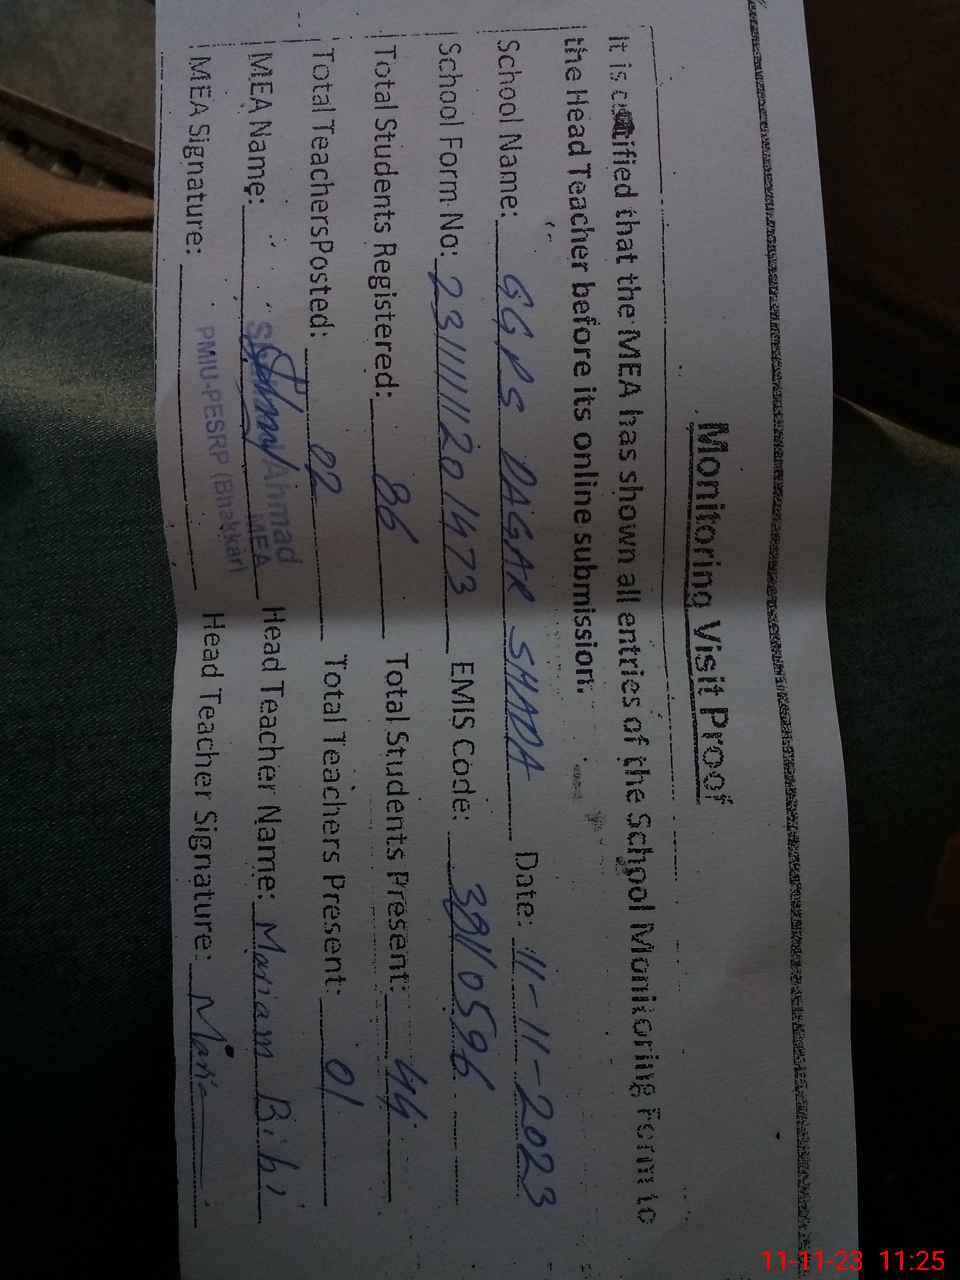 Monitoring Visit Proof
It is certified that the MEA has shown all entries of the School Monitoring Form to
the Head Teacher before its online submission.
School Name: GGPS DAGAR SHADA Date: 11-11-2023
School Form No: EMIS Code: 39110596
Total Students Registered: 86 Total Students Present: 44
Total TeachersPosted: 02 Total Teachers Present: 01
MEA Name: Ahmad Head Teacher Name: Mariam Bibi
MEA
MEA Signature: PMIU-PESRP (Bhakkar) Head Teacher Signature:
11-11-23 11:25